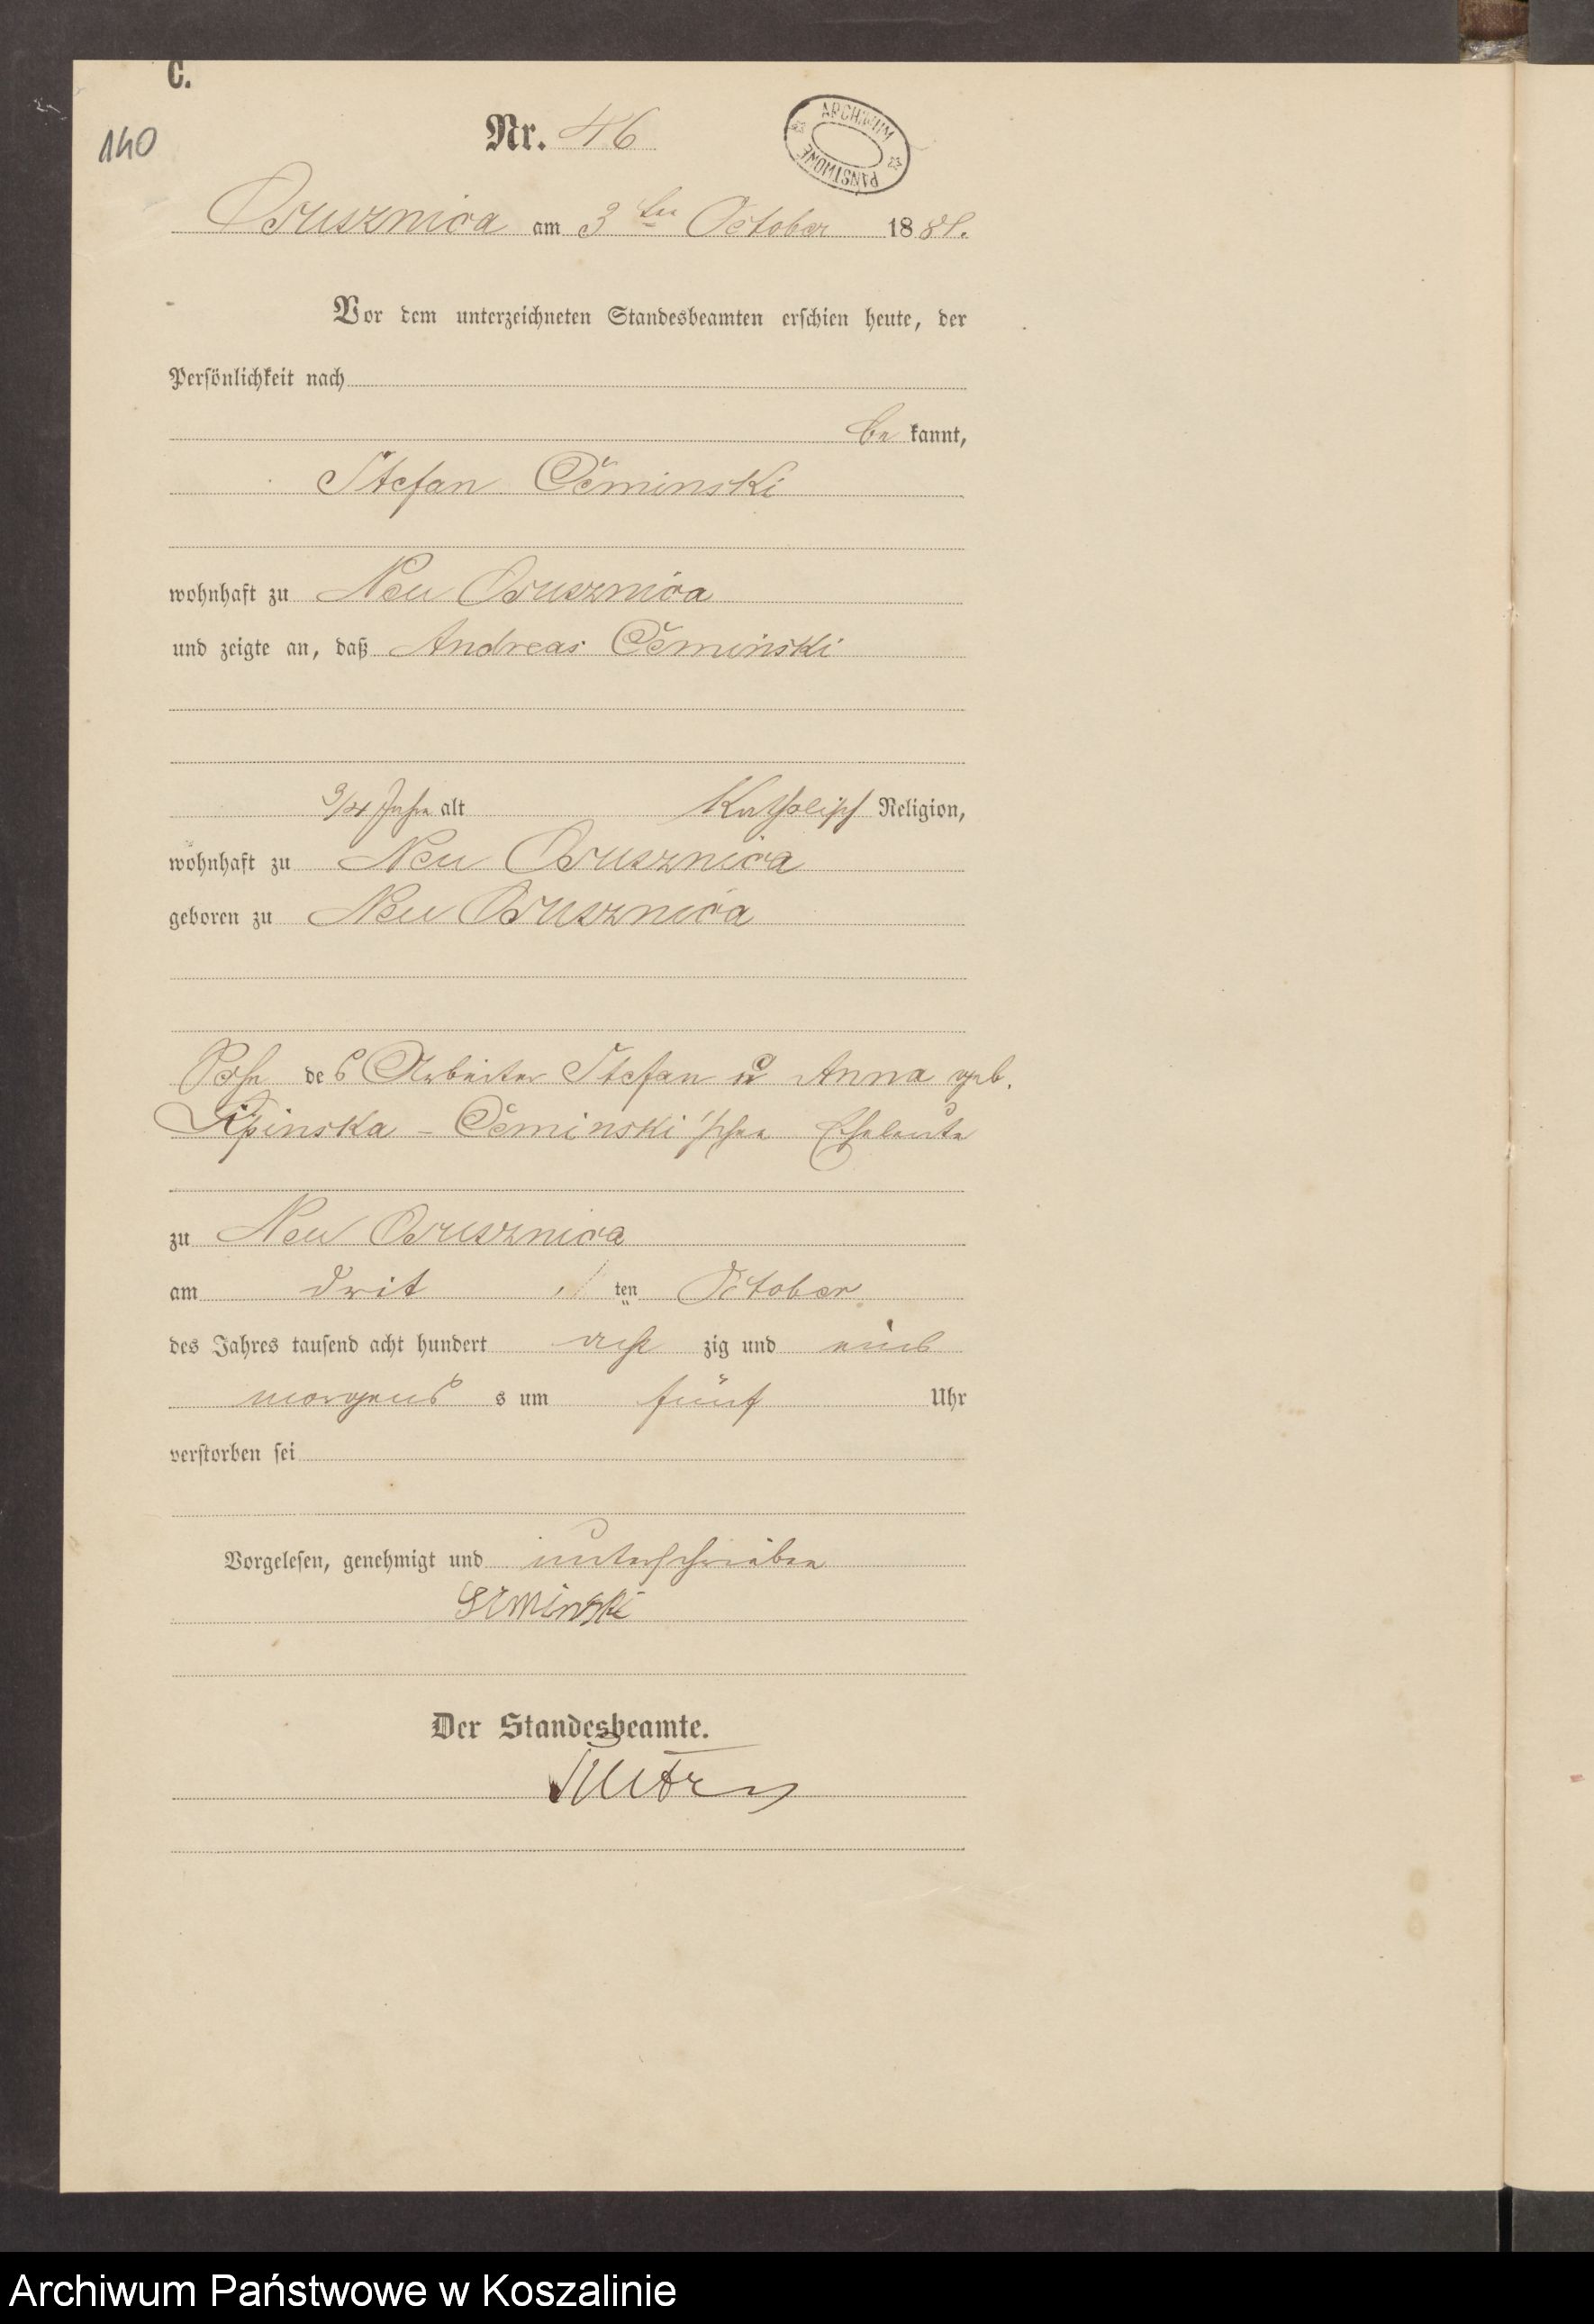 C.
140
Nr. 46
ARCHIWUM PAŃSTWOWE
Ossusznica am 3ten October 1881.
Vor dem unterzeichneten Standesbeamten erschien heute, der
Persönlichkeit nach
be kannt,
Stefan Cěminski
wohnhaft zu Neu Ossusznica
und zeigte an, daß Andreas Cěminski
3/4 Jahr alt Katholisch Religion,
wohnhaft zu Neu Ossusznica
geboren zu Neu Ossusznica
Sohn des Arbeiter Stefan u Anna geb.
Lipinska - Cěminski'schen Eheleute
zu Neu Ossusznica
am drit ten October
des Jahres tausend acht hundert acht zig und eins
morgens s um fünf Uhr
verstorben sei
Vorgelesen, genehmigt und unterschrieben
Der Standesbeamte.
Archiwum Państwowe w Koszalinie